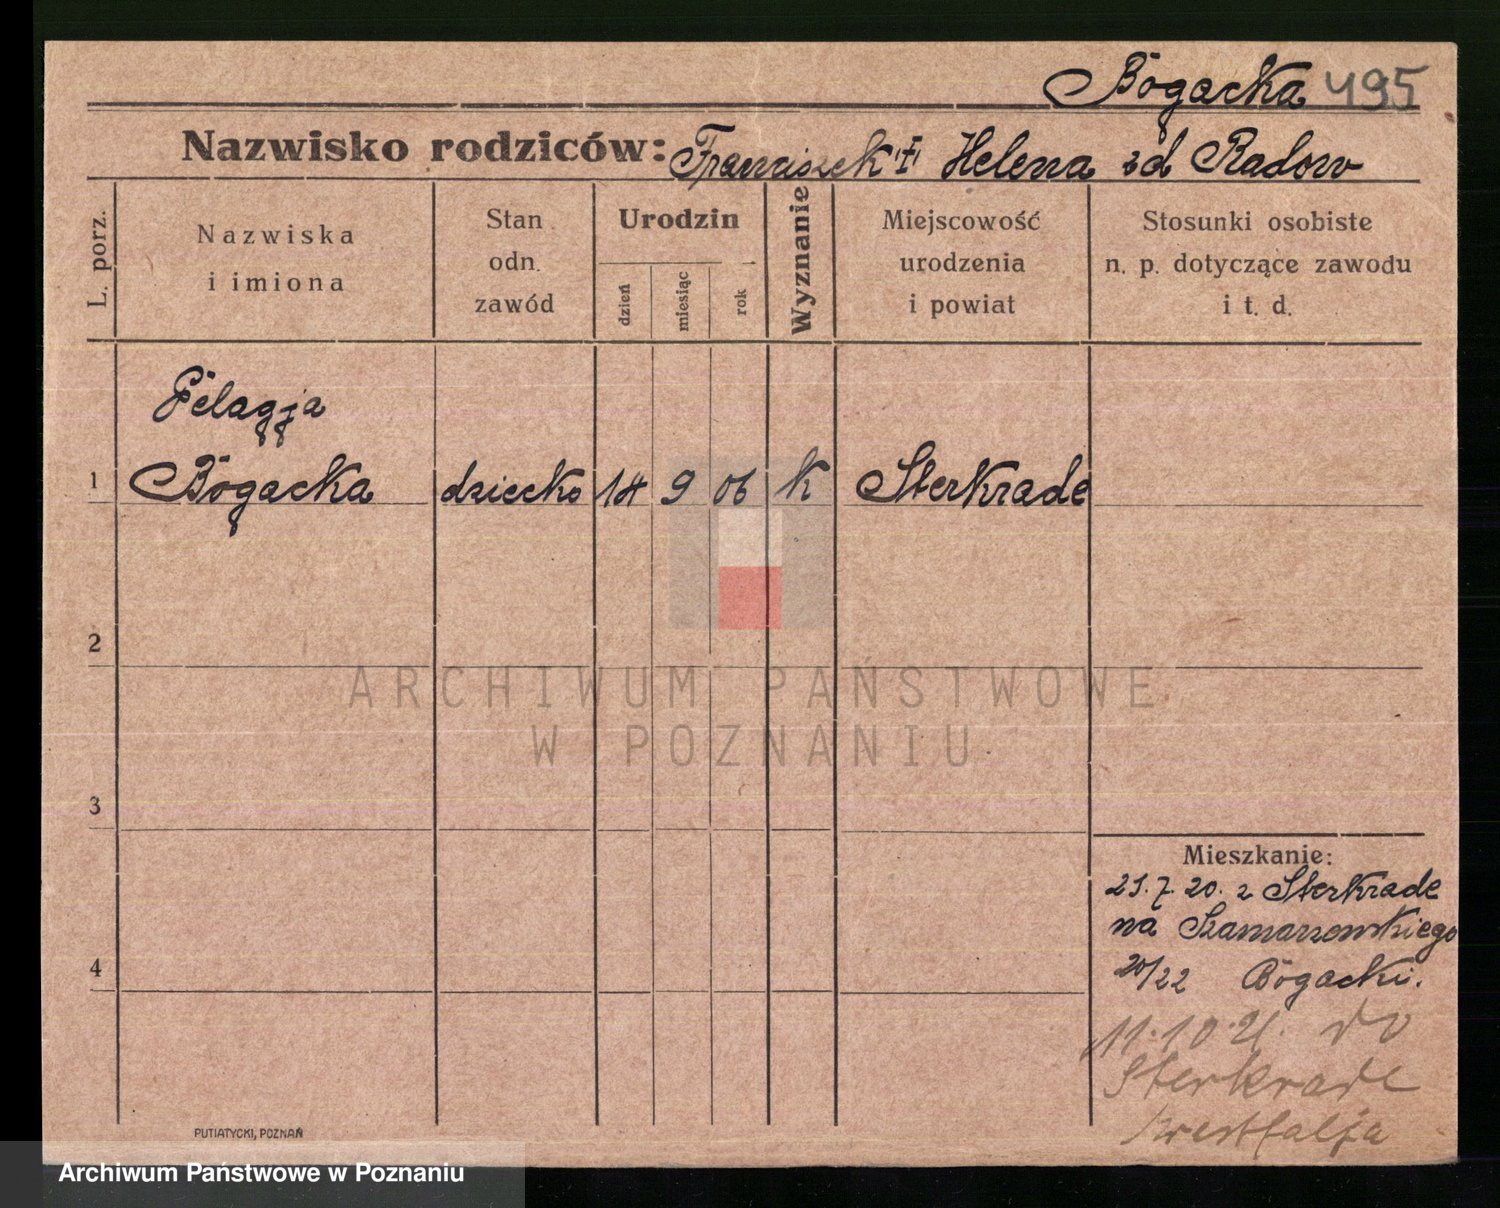 Bogacka 495
Nazwisko rodziców: Franciszek "I" Helena zd Radow
L. porz.
Nazwiska
i imiona
Stan
odn.
zawód
Urodzin
dzień
miesiąc
rok
Wyznanie
Miejscowość
urodzenia
i powiat
Stosunki osobiste
n. p. dotyczące zawodu
i t. d.
Pelagja
1 Bogacka dziecko 14 9 06 k Sterkrade
2
ARCHIWUM PAŃSTWOWE
W POZNANIU
3
Mieszkanie:
21.7.20. z Sterkrade
na Szamarzewskiego
20/22 Bogacki.
4
11.10.21. do
Sterkrade
Westfalja
PUTIATYCKI, POZNAŃ
Archiwum Państwowe w Poznaniu